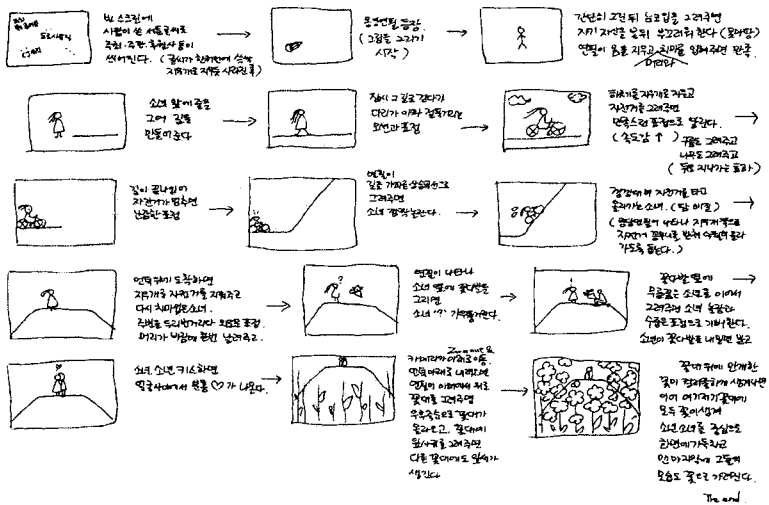 빈 스크린에
사람이 쓴 서툰 글씨로
주최·주관·후원사 등이
씌어진다. (글씨가 한꺼번에 슥슥
지우개로 지우듯 사라진 후)
몽당연필 등장
(그림을 그리기
시작)
간단히 그린 뒤 눈코입을 그려주면
자기 자신을 본뒤 부끄러워 한다
연필이 몸을 지우고 치마를 입혀주면 만족.
머리와
소녀 앞에 줄을
그어 길을
만들어 준다
잠시 그 길로 걷다가
다리가 아파
표정
하체를 지우개로 지우고
자전거를 그려주면
만족스런 표정으로 달린다.
(속도감 ↑)
구름도 그려주고
나무도 그려주고
(휙휙 지나가는 효과)
길이 끝나있어
자전거가 멈추면
난감한 표정
연필이
길을 가파른 상승곡선으로
그려주면
소녀 깜짝 놀란다.
자전거를 타고
올라가는 소녀. (땀 삐질)
(몽당연필이 나타나 지우개쪽으로
자전거 꽁무니를 받쳐 수월히 올라
가도록 돕는다.)
언덕위에 도착하면
지우개로 자전거를 지워주고
다시 치마입은 소녀.
주변을 두리번거리다
머리가 바람에 한번 날려주고.
연필이 나타나
소녀 옆에 꽃다발을
그리면
소녀 '?' 갸우뚱거린다.
꽃다발 옆에
무릎꿇은 소년을 이어서
그려주면 소녀 놀람과
수줍은 표정으로 기뻐한다.
소년이 꽃다발로 내밀면 받고
소녀, 소년 키스하면
얼굴사이에서 뿅 ♡가 나온다.
Zoom out &
카메라가 아래로 이동.
언덕아래로 내려오면
연필이 아래에서 위로
꽃대를 그려주면
우후죽순으로 꽃대가
올라오고, 꽃대에
잎사귀를 그려주면
다른 꽃대에도 잎사귀가
생긴다
꽃대 위에 만개한
꽃이 생겨나면
이어 여기저기 꽃대에
모두 꽃이 생겨
소년소녀를 중심으로
화면에 가득차고
맨 마지막에 그들의
모습도 꽃으로 가려진다.
The end.